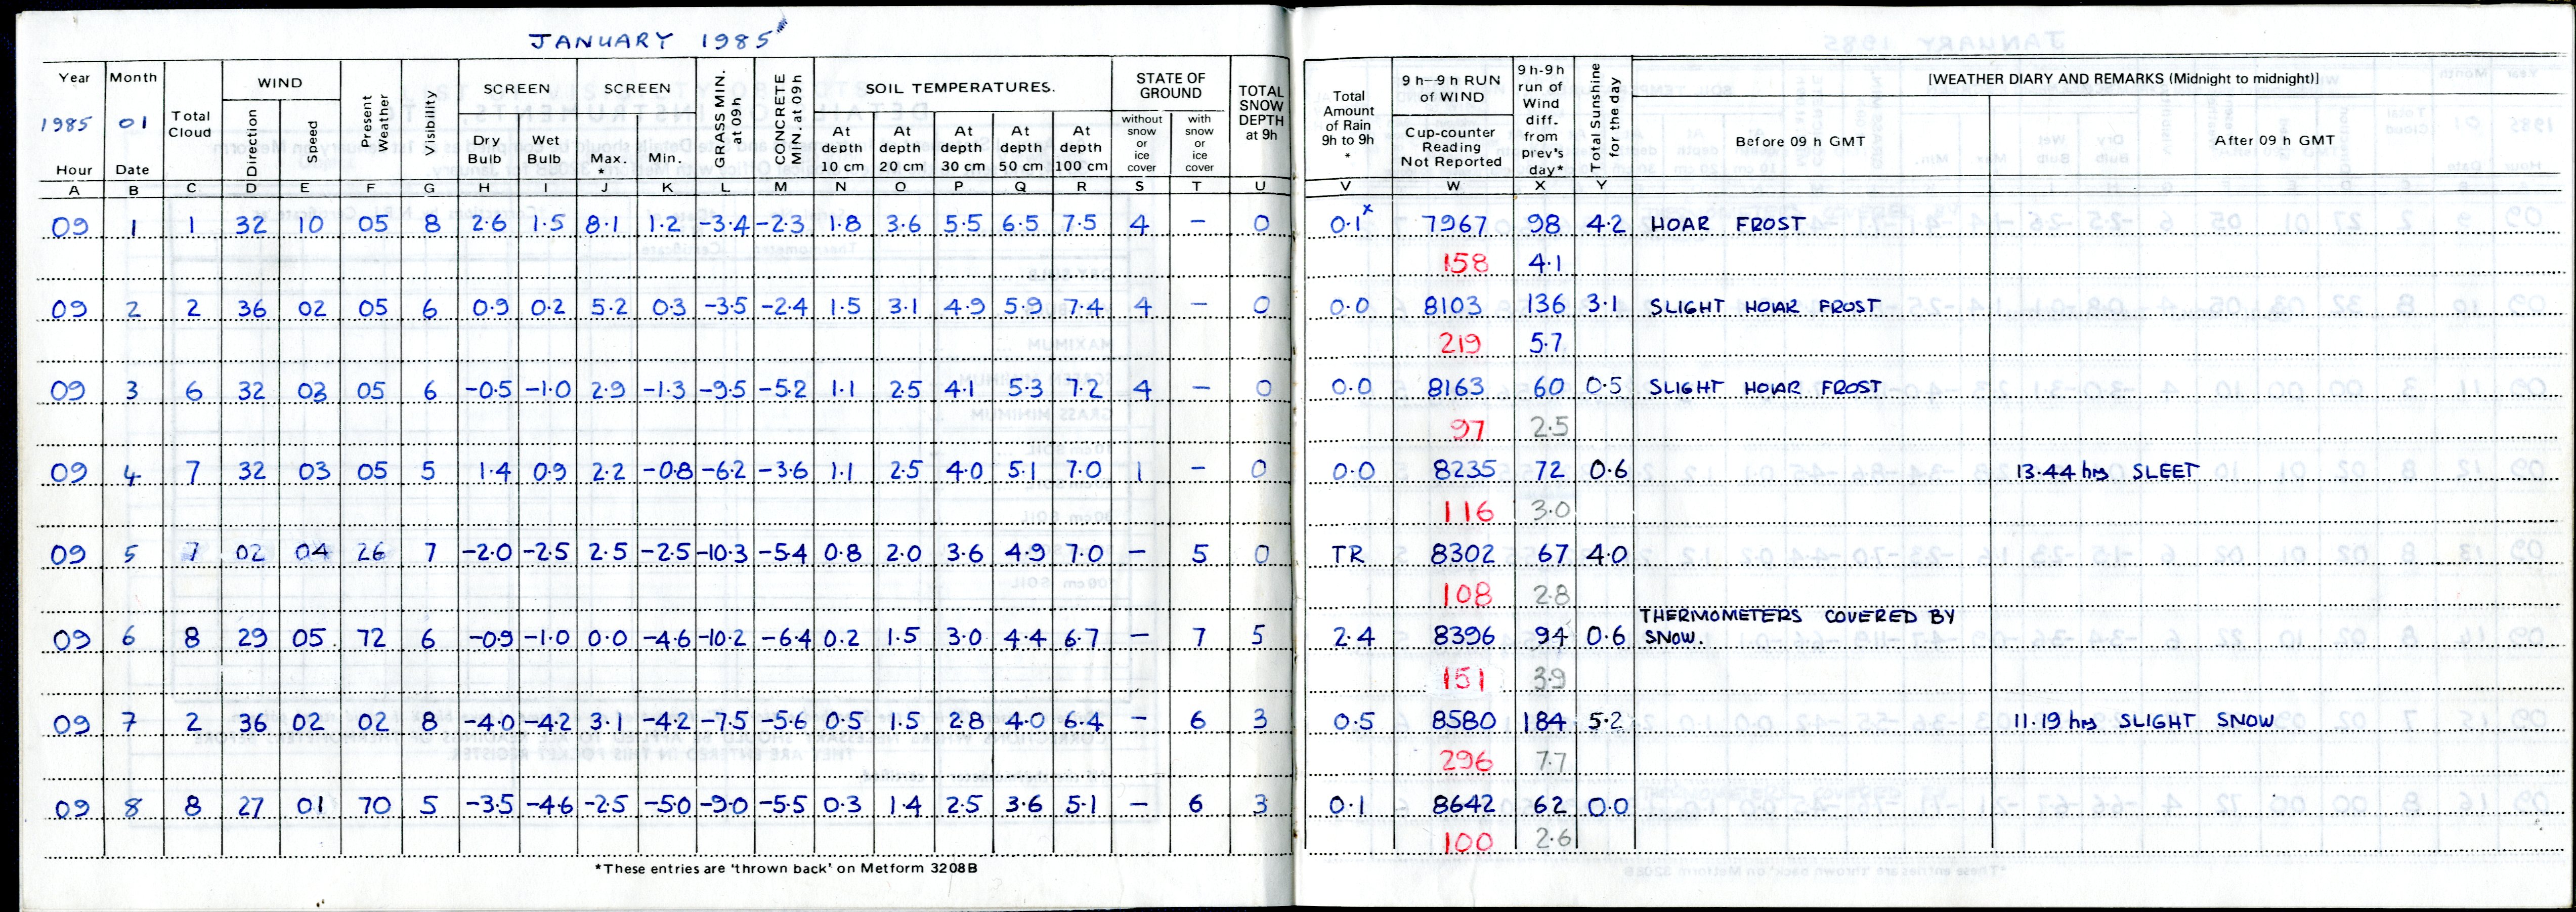 JANUARY 1985
Year Month Total Cloud WIND Present Weather Visibility SCREEN SCREEN GRASS MIN. at 09h CONCRETE MIN. at 09h SOIL TEMPERATURES. STATE OF GROUND TOTAL SNOW DEPTH at 9h Total Amount of Rain 9h to 9h * 9 h–9 h RUN of WIND 9 h-9h run of Wind diff. from prev's day* Total Sunshine for the day [WEATHER DIARY AND REMARKS (Midnight to midnight)]
1985 01 Direction Speed Dry Bulb Wet Bulb Max. * Min. At depth 10 cm At depth 20 cm At depth 30 cm At depth 50 cm At depth 100 cm without snow or ice cover with snow or ice cover Cup-counter Reading Not Reported Before 09 h GMT After 09 h GMT
Hour Date
A B C D E F G H I J K L M N O P Q R S T U V W X Y
09 1 1 32 10 05 8 2·6 1·5 8·1 1·2 -3·4 -2·3 1·8 3·6 5·5 6·5 7·5 4 – 0 0·1x 7967 98 4·2 HOAR FROST
158 4·1
09 2 2 36 02 05 6 0·9 0·2 5·2 0·3 -3·5 -2·4 1·5 3·1 4·9 5·9 7·4 4 – 0 0·0 8103 136 3·1 SLIGHT HOAR FROST
219 5·7
09 3 6 32 03 05 6 -0·5 -1·0 2·9 -1·3 -9·5 -5·2 1·1 2·5 4·1 5·3 7·2 4 – 0 0·0 8163 60 0·5 SLIGHT HOAR FROST
97 2·5
09 4 7 32 03 05 5 1·4 0·9 2·2 -0·8 -6·2 -3·6 1·1 2·5 4·0 5·1 7·0 1 – 0 0·0 8235 72 0·6 13·44 hrs SLEET
116 3·0
09 5 7 02 04 26 7 -2·0 -2·5 2·5 -2·5 -10·3 -5·4 0·8 2·0 3·6 4·9 7·0 – 5 0 TR 8302 67 4·0
108 2·8
THERMOMETERS COVERED BY
09 6 8 29 05 72 6 -0·9 -1·0 0·0 -4·6 -10·2 -6·4 0·2 1·5 3·0 4·4 6·7 – 7 5 2·4 8396 94 0·6 SNOW.
151 3·9
09 7 2 36 02 02 8 -4·0 -4·2 3·1 -4·2 -7·5 -5·6 0·5 1·5 2·8 4·0 6·4 – 6 3 0·5 8580 184 5·2 11·19 hrs SLIGHT SNOW
296 7·7
09 8 8 27 01 70 5 -3·5 -4·6 -2·5 -5·0 -9·0 -5·5 0·3 1·4 2·5 3·6 5·1 – 6 3 0·1 8642 62 0·0
100 2·6
*These entries are 'thrown back' on Metform 3208B